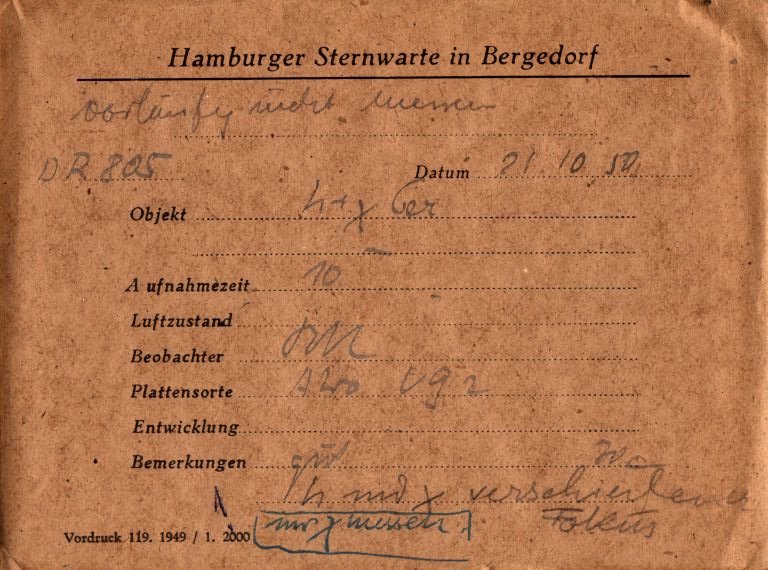 Hamburger Sternwarte in Bergedorf
vorläufig nicht messen
DR 805 Datum 21.10.50
Objekt h + χ Per
Aufnahmezeit 10
Luftzustand
Beobachter
Plattensorte UG 2
Entwicklung
Bemerkungen gut
h und χ verschiedener
Fokus
Vordruck 119. 1949 / 1. 2000 nur χ messen!